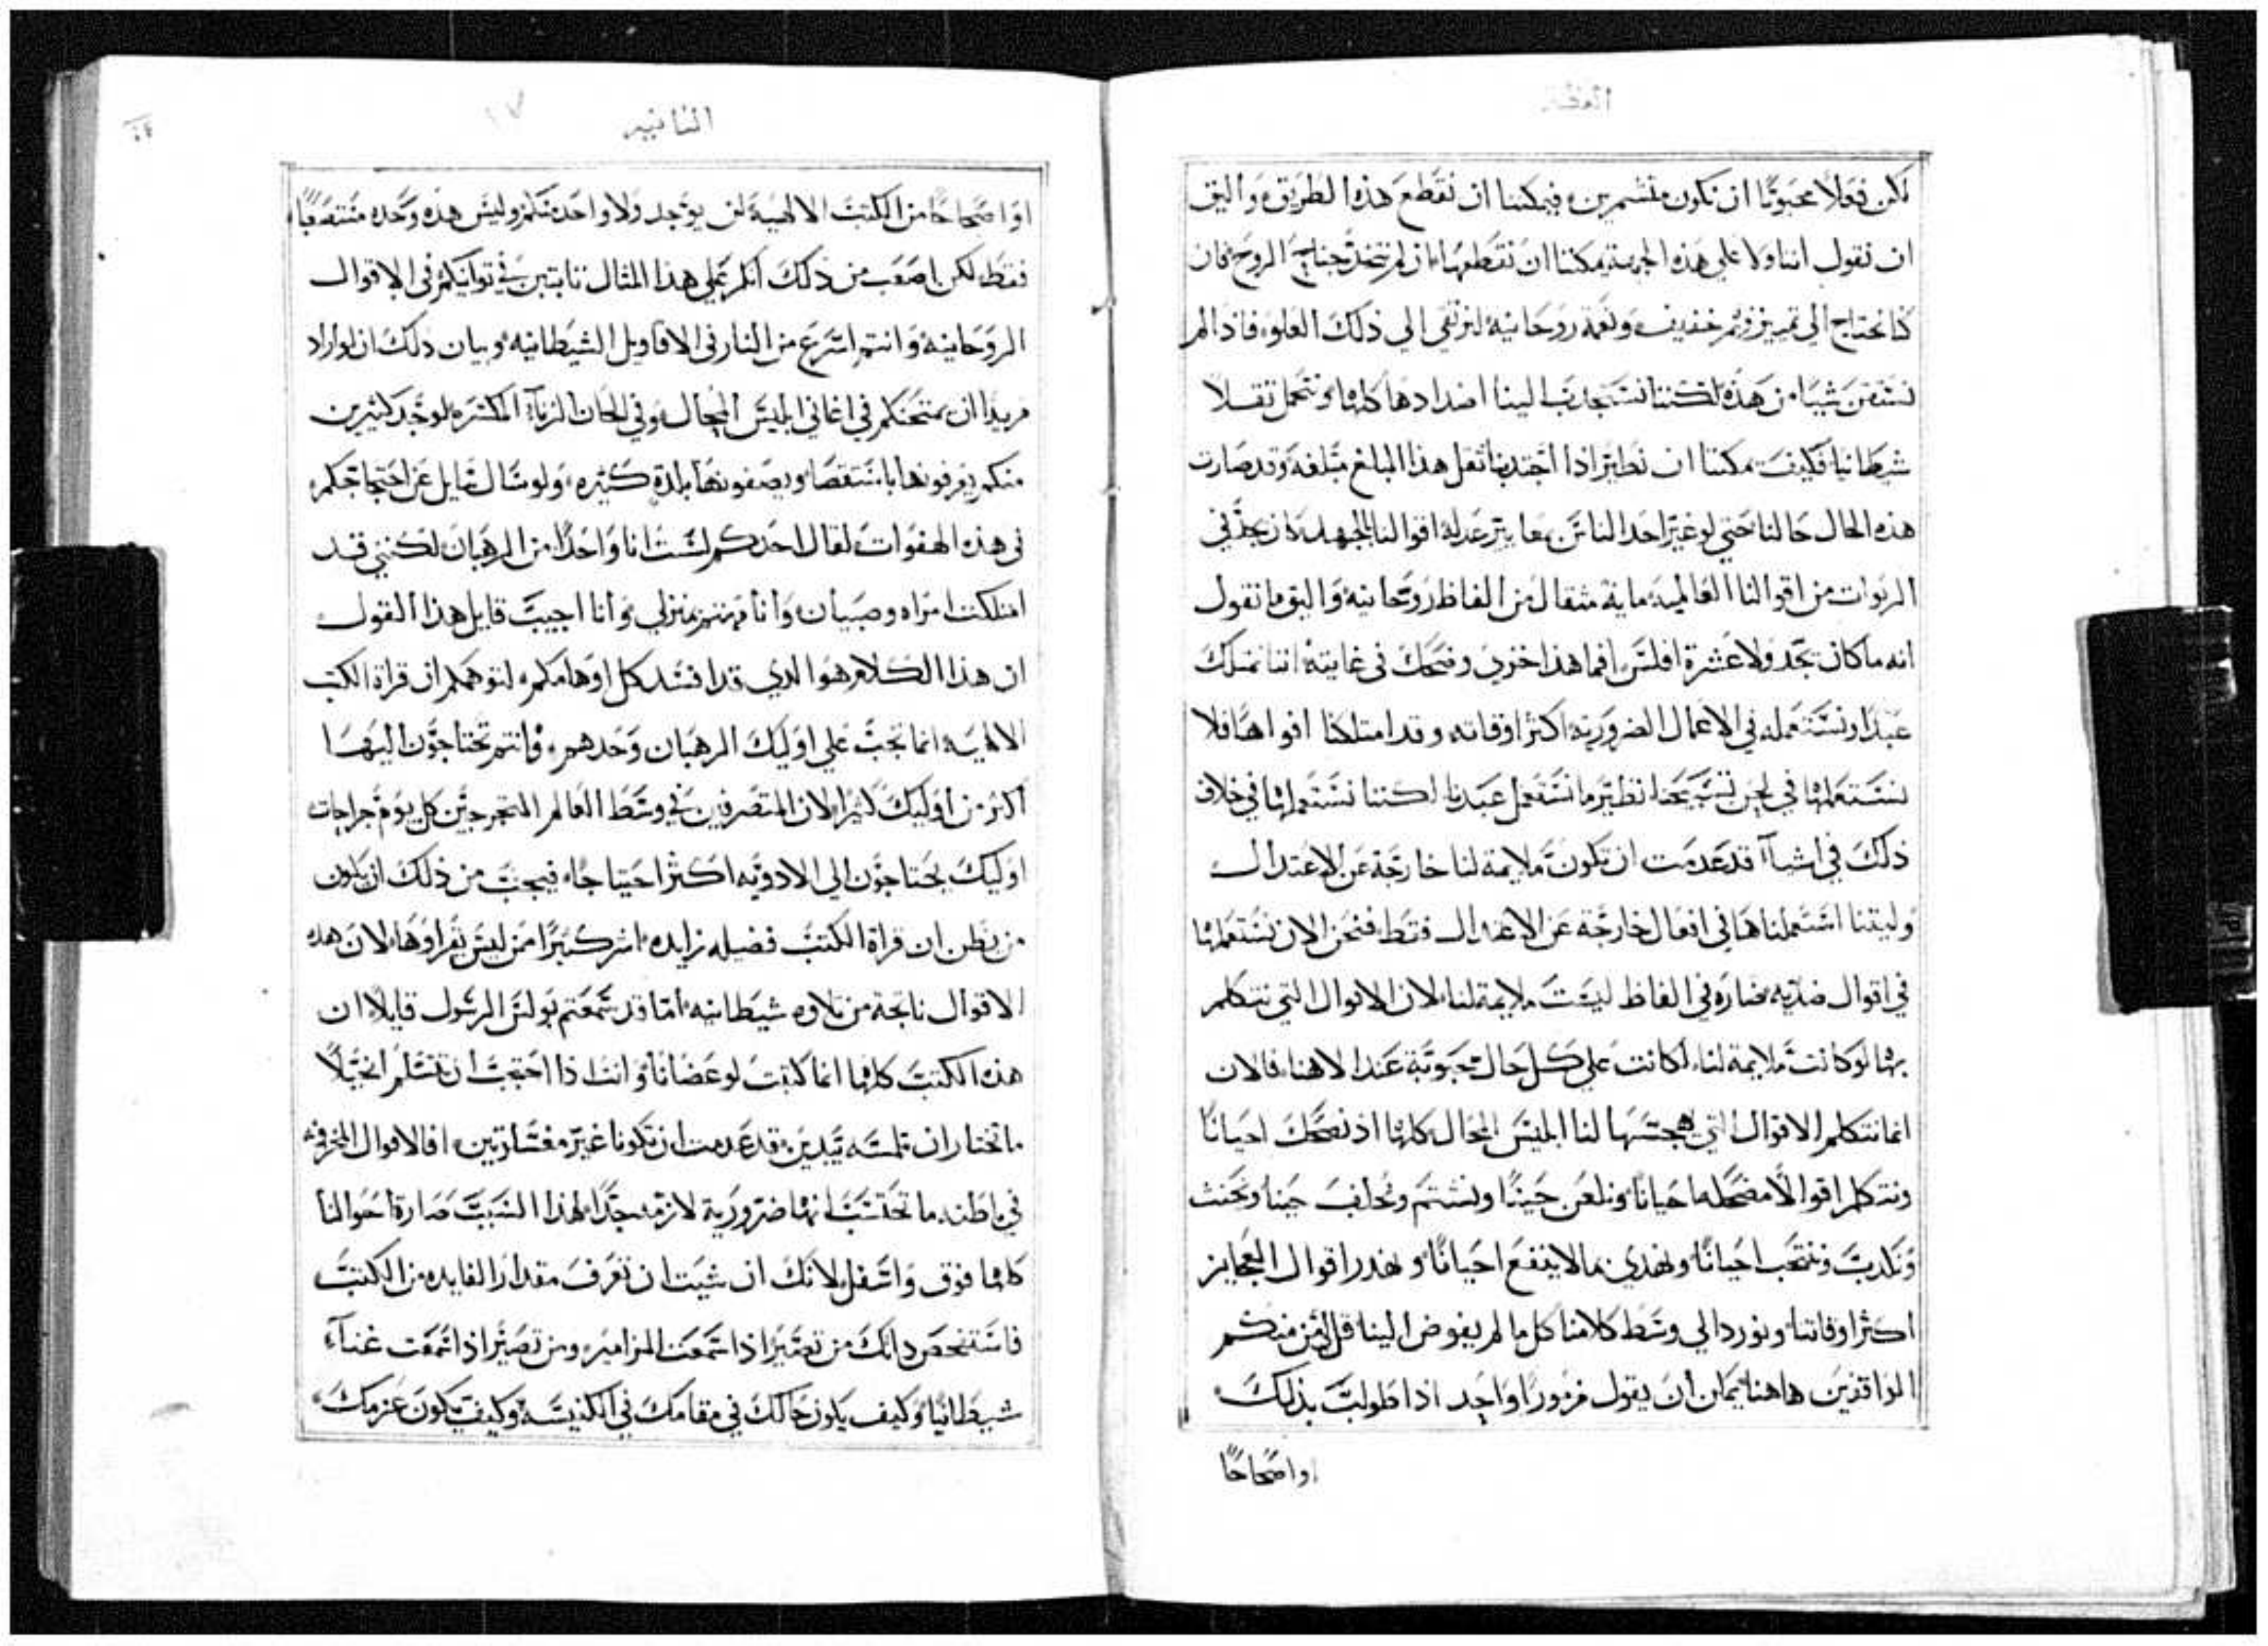 العظه
لكن فعلاً محبوبًا ان نكون متشمرين، فيمكننا ان نقطع هذه الطريق، واليق
ان نقول اننا ولا علي هذه الجهة يمكننا ان نقطعها، ان لم نتخذ جناح الروح فان
كنا نحتاج الي تمييز خفيف ونعمة روحانيه لنرتقي الي ذلك العلو، فاذا لم
نقتن شيًا من هذه لكننا نستجذب الينا اضدادها كلها ونتحمل ثقلاً
شيطانيا فكيف يمكننا ان نطير اذا اجتذبنا ثقل هذا المبلغ مبلغه وقد صارت
هذه الحال حالنا حتي لو غير احد الناس
الربوات من اقوالنا العالميه ماية مثقال من الفاظ روحانيه واليق ما نقول
انه ما كان يجد ولا عشرة افلس، افما هذا خزي وضحك في غايته اننا نمتلك
عبدًا ونستعمله في الاعمال الضروريه اكثر اوقاته وقد امتلكنا افواهًا فلا
نستعملها في لحن تسبيحنا نظير ما نستعمل عبدنا لكننا نستعملها في خلاف
ذلك في اشيآ قد عدمت ان تكون ملايمة لنا خارجة عن الاعتدال
وليتنا استعملناها في افعال خارجة عن الاعتدال فقط فنحن الان نستعملها
في اقوال ضديه ضاره في الفاظ ليست ملايمة لنا، لان الاقوال التي نتكلم
بها لو كانت ملايمة لنا، لكانت علي كل حال محبوبة عند الاهنا، فالان
انما نتكلم الاقوال التي هجسها لنا ابليس المحال كلها اذ نضحك احيانًا
ونتكلم اقوالاً مضحكه احيانًا ونلعن حينًا ونشتم ونحلف حينا ونحنث
ونكذب وننتحب احيانًا ونهدي بما لا ينفع احيانًا، ونهدر اقوال العجايز
اكثر اوقاتنا، ونورد الي وسط كلامنا كل ما لم يفوض الينا قل لي من منكم
الواقفين هاهنا يمكن ان يقول مزمورًا واحد اذا طولب بذلك
او اصحاحًا
الثانيه
١٧
او اصحاحًا من الكتب الالهية لن يوجد ولا واحد منكم وليس هذه وحده مستصعبًا
فقط لكن اصعب من ذلك انكم علي هذا المثال ثابتين في توانيكم في الاقوال
الروحانيه وانتم اسرع من النار في الاقاويل الشيطانيه وبيان ذلك ان لو اراد
مريدًا ان يمتحنكم في اغاني ابليس المحال وفي الحان الزنآ المكسره لوجد كثيرين
منكم يعرفونها باستقصا ويصفونها بلذة كثيره، ولو سال سايل عن احتجاجكم
في هذه الهفوات لقال احدكم لست انا واحدًا من الرهبان لكنني قد
امتلكت امراه وصبيان وانا مهتم بمنزلي وانا اجيب قايل هذا القول
ان هذا الكلام هو الذي قد افسد كل اوهامكم، لتوهمكم ان قراة الكتب
الالهيه انما تجب علي اوليك الرهبان وحدهم، وانتم تحتاجون اليها
اكثر من اوليك كثيرا لان المتصرفين في وسط العالم المتجرحين كل يوم جراحات
اوليك يحتاجون الي الادويه اكثر احتياجًا، فيجب من ذلك ان يكون
من يظن ان قراة الكتب فضيله زايده اشر كثيرًا ممن ليس يقراوها، لان هذه
الاقوال ناتجة من تلاوه شيطانيه، اما قد سمعتم بولس الرسول قايلاً ان
هذه الكتب كلها انما كتبت لوعضانا، وانت اذا احتجت ان تتسلم انجيلاً
ما تختار ان تلمسه بيدين قد عدمت ان تكونا غير مغسولتين، افالاقوال المخزونه
في باطنه ما تحتسب انها ضرورية لازمه جدًا لهذا السبب صارة احوالنا
كلها فوق واسفل، لانك ان شيت ان تعرف مقدار الفايده من الكتب
فاستفحص ذاتك من تصير اذا سمعت المزامير، ومن تصير اذا سمعت غنآء
شيطانيًا وكيف يكون حالك في مقامك في الكنيسه وكيف يكون عزمك